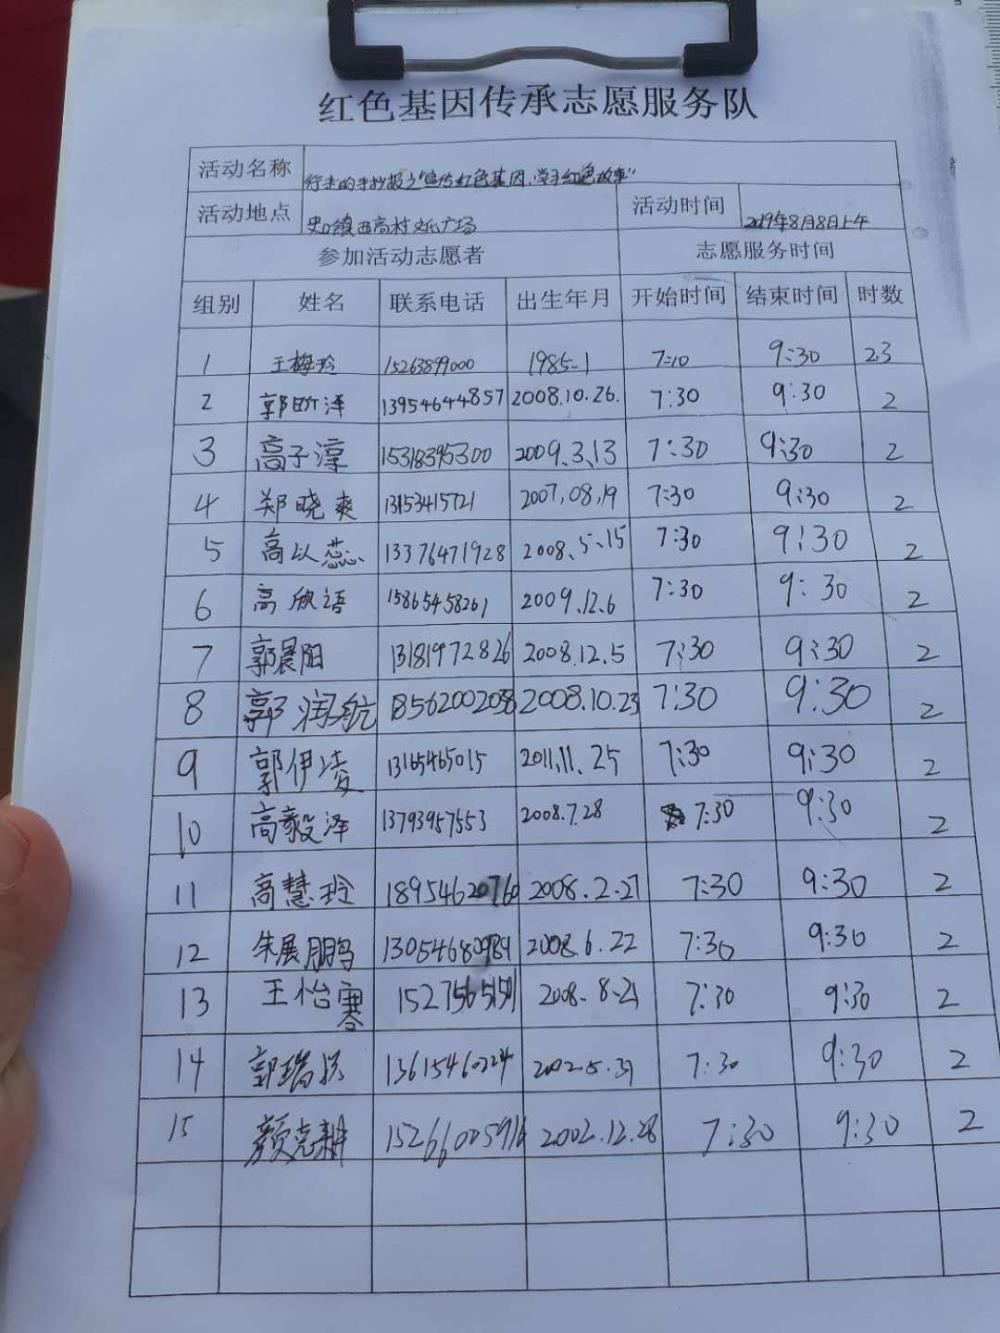 红色基因传承志愿服务队
活动名称 行走的手抄报之"宣传红色基因,学习红色故事"
活动地点 史口镇西高村文化广场 活动时间 2019年8月8日上午
参加活动志愿者 志愿服务时间
组别 姓名 联系电话 出生年月 开始时间 结束时间 时数
1 王梅玲 15263899000 1985-1 7:10 9:30 2.3
2 郭昕泽 13954644857 2008.10.26. 7:30 9:30 2
3 高子淳 15318395300 2009.3.13 7:30 9:30 2
4 郑晓爽 13153415721 2007.08.19 7:30 9:30 2
5 高以蕊 13376471928 2008.5.15 7:30 9:30 2
6 高欣语 15865458261 2009.12.6 7:30 9:30 2
7 郭晨阳 13181972826 2008.12.5 7:30 9:30 2
8 郭润航 18562002038 2008.10.23 7:30 9:30 2
9 郭伊凌 13165465015 2011.11.25 7:30 9:30 2
10 高毅泽 13793957553 2008.7.28 7:30 9:30 2
11 高慧玲 18954620760 2008.2.27 7:30 9:30 2
12 朱展鹏 2008.6.22 7:30 9:30 2
13 王怡骞 2008.8-21 7:30 9:30 2
14 7:30 9:30 2
15 颜克耕 15266005916 2002.12.28 7:30 9:30 2